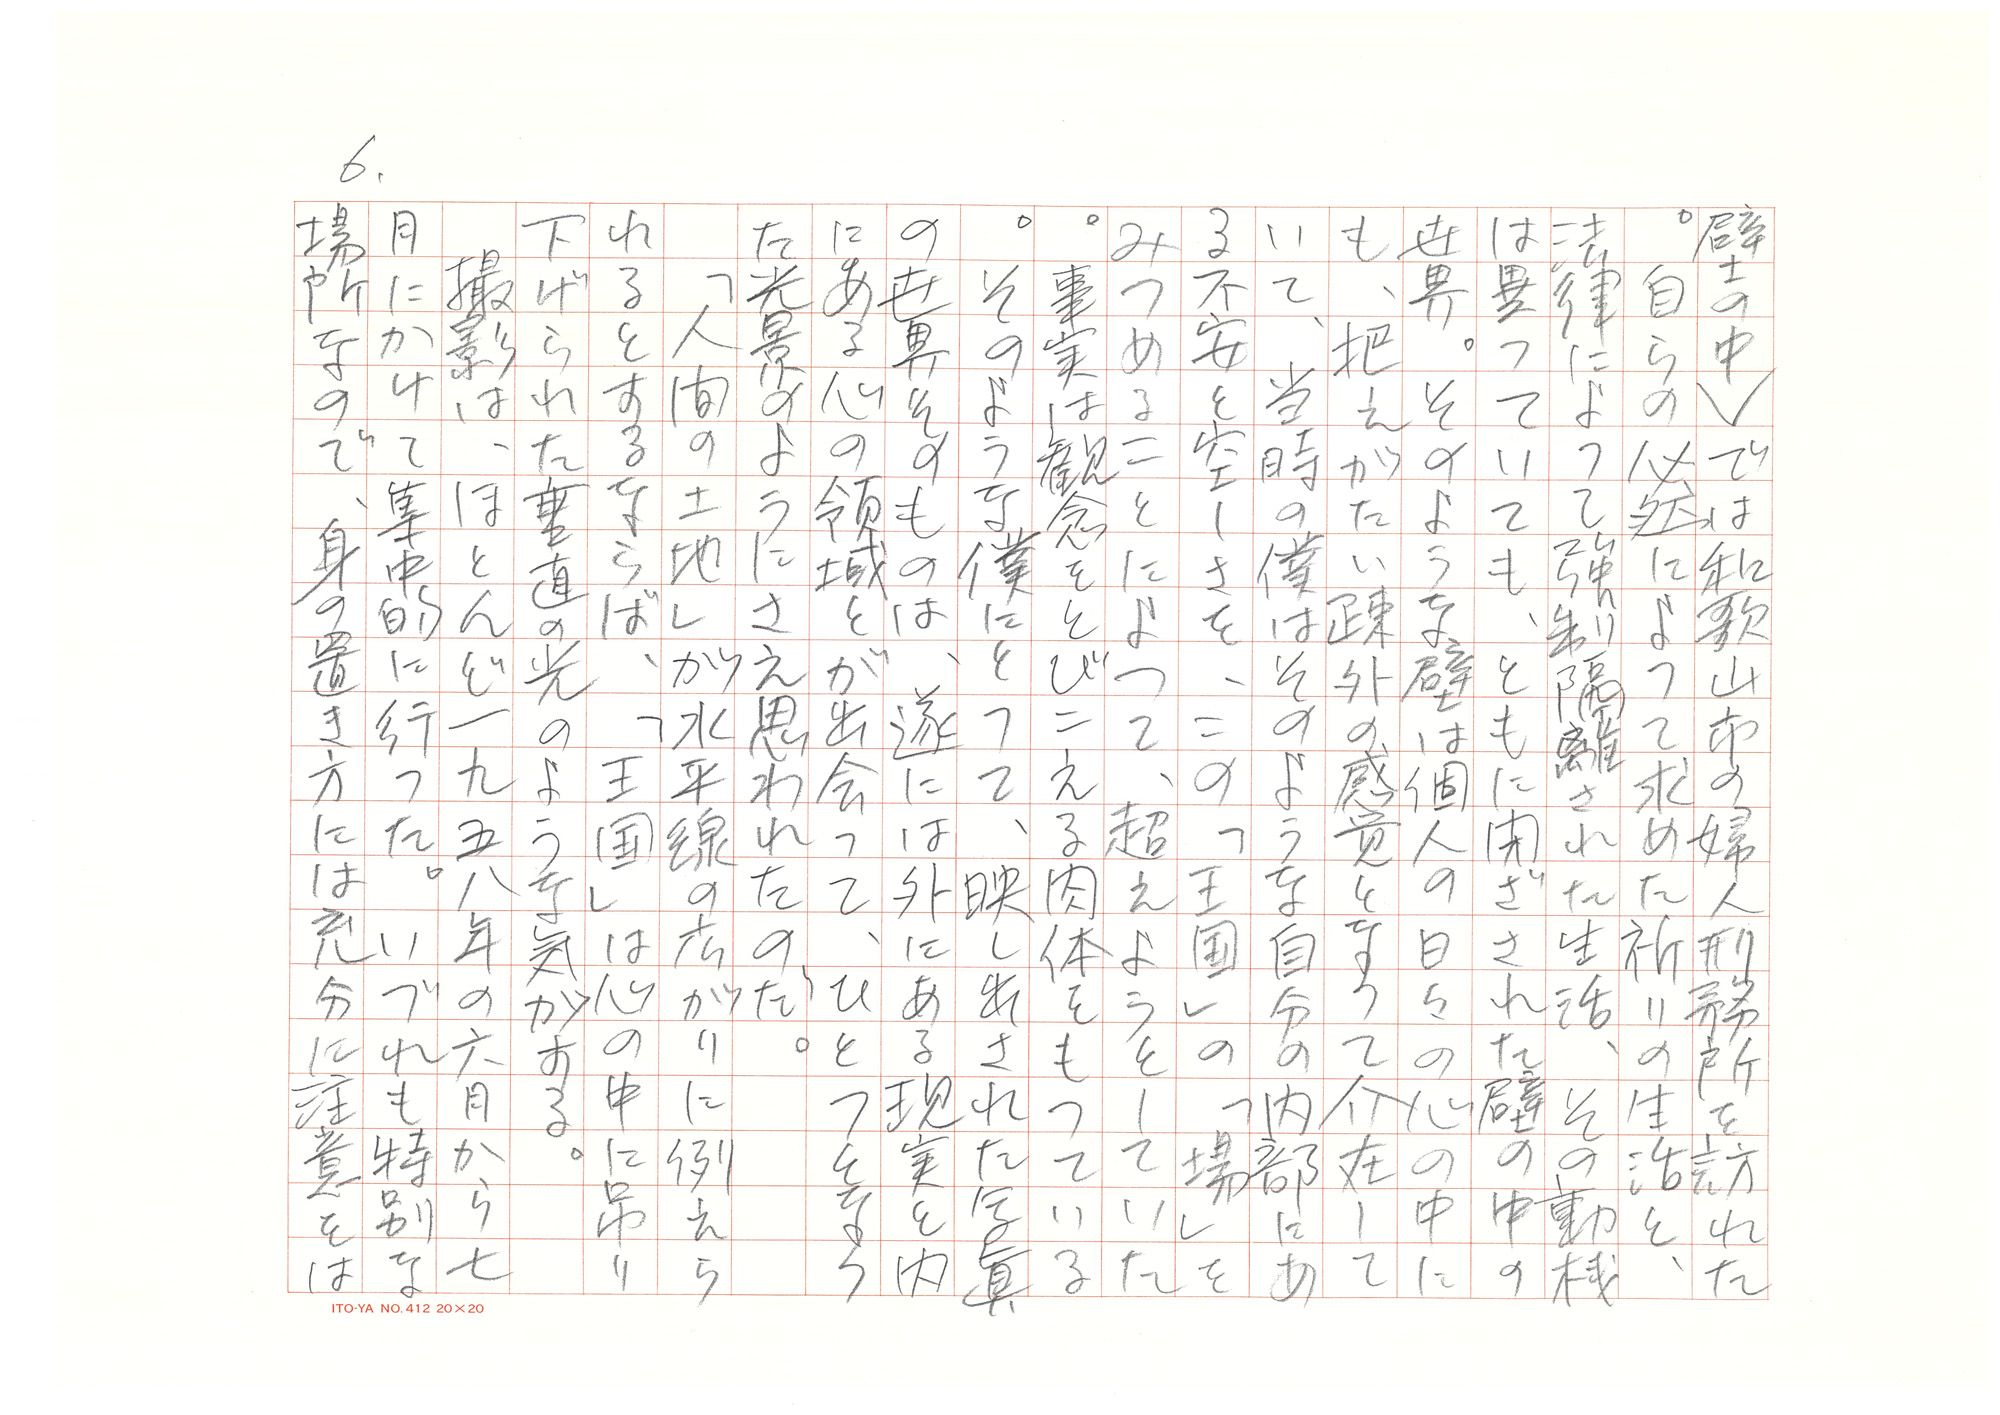 6.
壁の中＞では和歌山市の婦人刑務所を訪れた
。自らの必然によって求めた祈りの生活と、
法律によって強制隔離された生活、その動機
は異っていても、ともに閉ざされた壁の中の
世界。そのような壁は個人の日々の心の中に
も、把えがたい疎外の感覚となって介在して
いて、当時の僕はそのような自分の内部にあ
る不安と空しさを、この「王国」の「場」を
みつめることによって、超えようとしていた
。事実は観念をとびこえる肉体をもっている
。そのような僕にとって、映し出された写真
の世界そのものは、遂には外にある現実と内
にある心の領域とが出会って、ひとつをなう
た光景のようにさえ思われたのだ。
「人間の土地」が水平線の広がりに例えら
れるとするならば、「王国」は心の中に吊り
下げられた垂直の光のような気がする。
撮影は、ほとんど一九五八年の六月から七
月にかけて集中的に行った。いづれも特別な
場所なので、身の置き方には充分に注意をは
ITO-YA NO.412 20×20